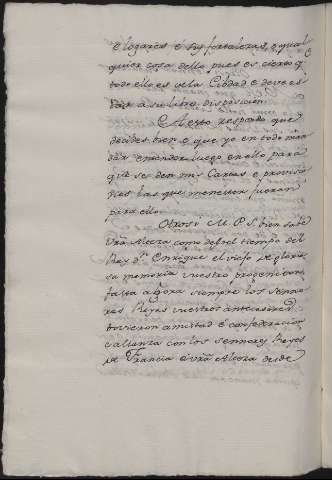 e logares é sus fortalezas, o qual
quier cosa dello pues es cierto q
todo ello es de la Cibdad e deve es
tar a su libre disposicion.
A esto respondo que
decides bien e que yo en todo man
dar e mandaré luego en ello para
que se den mis Cartas e provisio
nes las que menester fueran
para ello.
Otrosi M. P. S. bien sabe
vrã Alteza como desde el tiempo del
Rey dⁿ Enrique el viejo de glorio
sa memoria vuestro progenitor
fasta agora siempre los senno
res Reyes vuestros antecesores
tovieron amistad é confederacion
e alianza con los sennores Reyes
de Francia é vrã Alteza desde